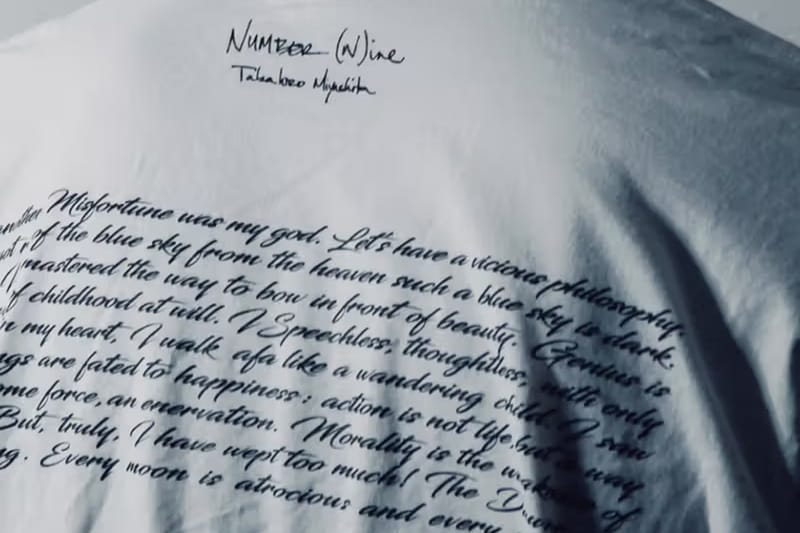 NUMBER (N)ine
Takahiro Miyashita
another Misfortune was my god. Let's have a vicious philosophy.
not of the blue sky from the heaven such a blue sky is dark.
I mastered the way to bow in front of beauty. Genius is
of childhood at will. I Speechless, thoughtless, with only
in my heart, I walk afa like a wandering child. I saw
ngs are fated to happiness: action is not life, but a way
ome force, an enervation. Morality is the weakness of
But, truly, I have wept too much! The Dawn
g. Every moon is atrocious and every